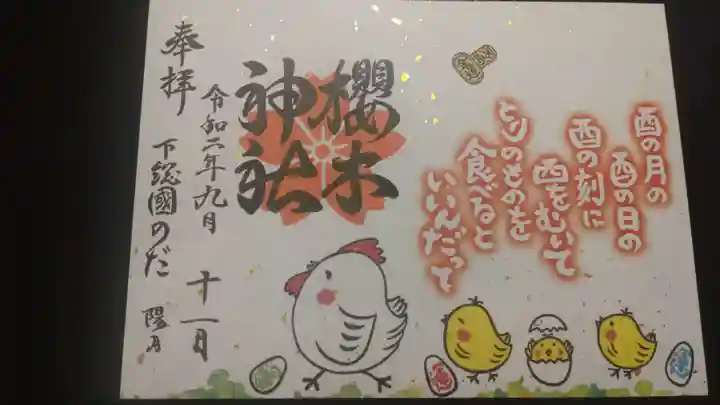 酉の月の
酉の日の
酉の刻に
西をむいて
とりのものを
食べると
いいんだって
櫻木
神社
奉拝
令和二年九月
十一日
下総國のだ